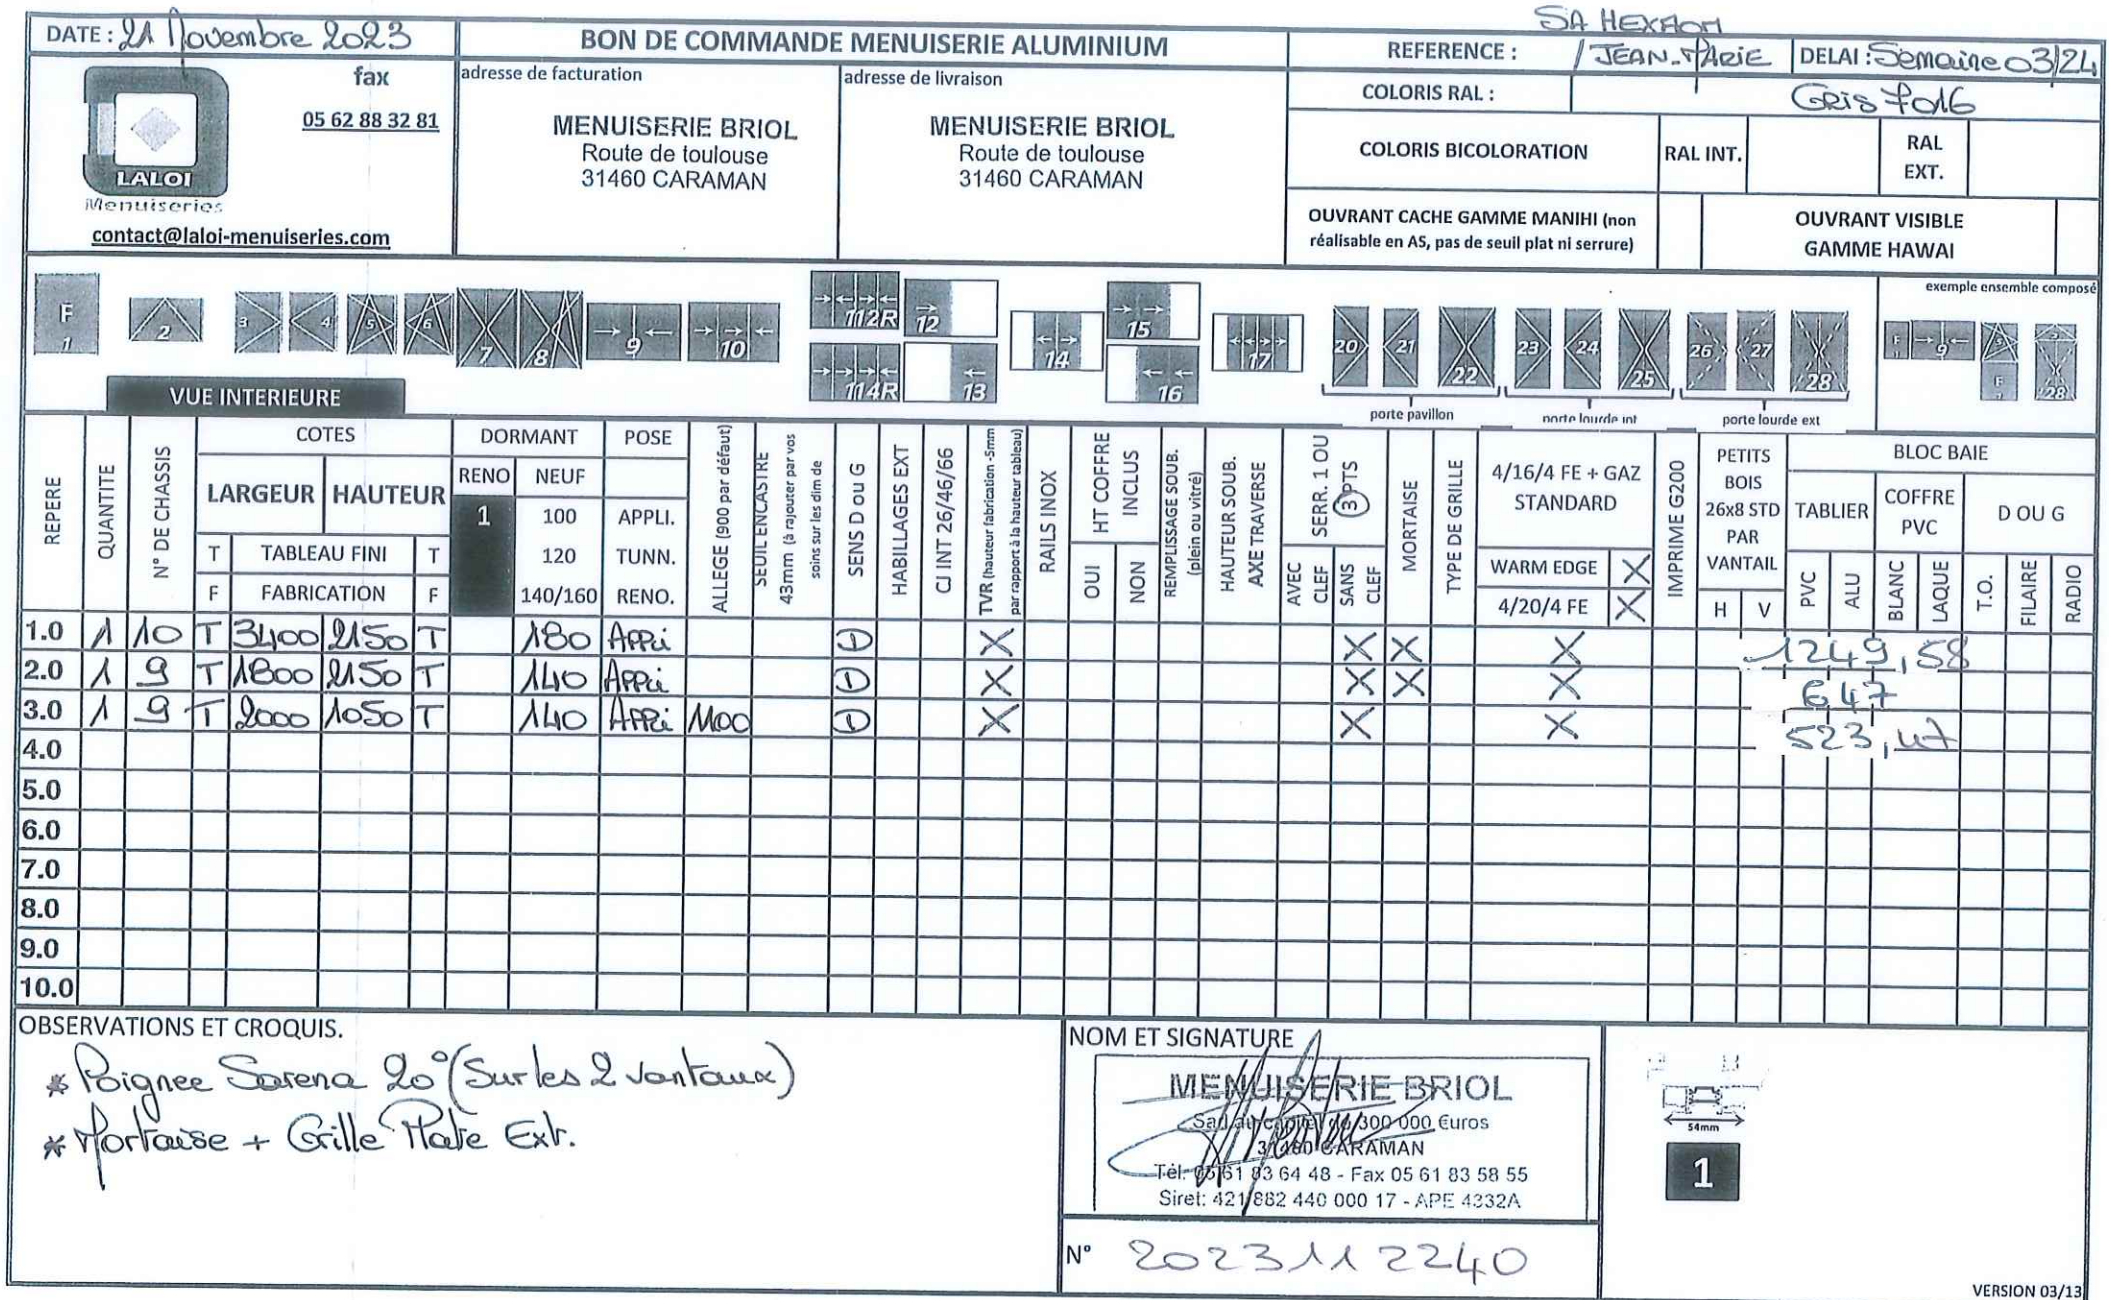 SA HEXAOM
DATE : 21 Novembre 2023
BON DE COMMANDE MENUISERIE ALUMINIUM
REFERENCE : / JEAN-MARIE
DELAI : Semaine 03/24
fax
05 62 88 32 81
LALOI
Menuiseries
contact@laloi-menuiseries.com
adresse de facturation
MENUISERIE BRIOL
Route de toulouse
31460 CARAMAN
adresse de livraison
MENUISERIE BRIOL
Route de toulouse
31460 CARAMAN
COLORIS RAL : Gris 7016
COLORIS BICOLORATION RAL INT. RAL EXT.
OUVRANT CACHE GAMME MANIHI (non
réalisable en AS, pas de seuil plat ni serrure)
OUVRANT VISIBLE
GAMME HAWAI
exemple ensemble composé
F 1 2 3 4 5 6 7 8 9 10 112R 114R 12 13 14 15 16 17 20 21 22 23 24 25 26 27 28
F 9 5 F 28
porte pavillon
porte lourde int
porte lourde ext
VUE INTERIEURE
REPERE
QUANTITE
N° DE CHASSIS
COTES
LARGEUR HAUTEUR
T TABLEAU FINI T
F FABRICATION F
DORMANT
RENO NEUF
1 100
120
140/160
POSE
APPLI.
TUNN.
RENO.
ALLEGE (900 par défaut)
SEUIL ENCASTRE
43mm (à rajouter par vos
soins sur les dim de
SENS D ou G
HABILLAGES EXT
CJ INT 26/46/66
TVR (hauteur fabrication -5mm
par rapport à la hauteur tableau)
RAILS INOX
HT COFFRE
INCLUS
OUI
NON
REMPLISSAGE SOUB.
(plein ou vitré)
HAUTEUR SOUB.
AXE TRAVERSE
SERR. 1 OU
3 PTS
AVEC
CLEF
SANS
CLEF
MORTAISE
TYPE DE GRILLE
4/16/4 FE + GAZ
STANDARD
WARM EDGE X
4/20/4 FE X
IMPRIME G200
PETITS
BOIS
26x8 STD
PAR
VANTAIL
H V
BLOC BAIE
TABLIER
PVC
ALU
COFFRE
PVC
BLANC
LAQUE
D OU G
T.O.
FILAIRE
RADIO
1.0 1 10 T 3400 2150 T 180 Appli D X X X X 1249,58
2.0 1 9 T 1800 2150 T 140 Appli D X X X X 647
3.0 1 9 T 2000 1050 T 140 Appli 1100 D X X X 523,47
4.0
5.0
6.0
7.0
8.0
9.0
10.0
OBSERVATIONS ET CROQUIS.
* Poignee Sarena 20° (Sur les 2 vantaux)
* Mortaise + Grille Plate Ext.
NOM ET SIGNATURE
MENUISERIE BRIOL
Sarl au capital de 300 000 €uros
31460 CARAMAN
Tél. 05 61 83 64 48 - Fax 05 61 83 58 55
Siret: 421 882 440 000 17 - APE 4332A
N° 2023112240
54mm
1
VERSION 03/13